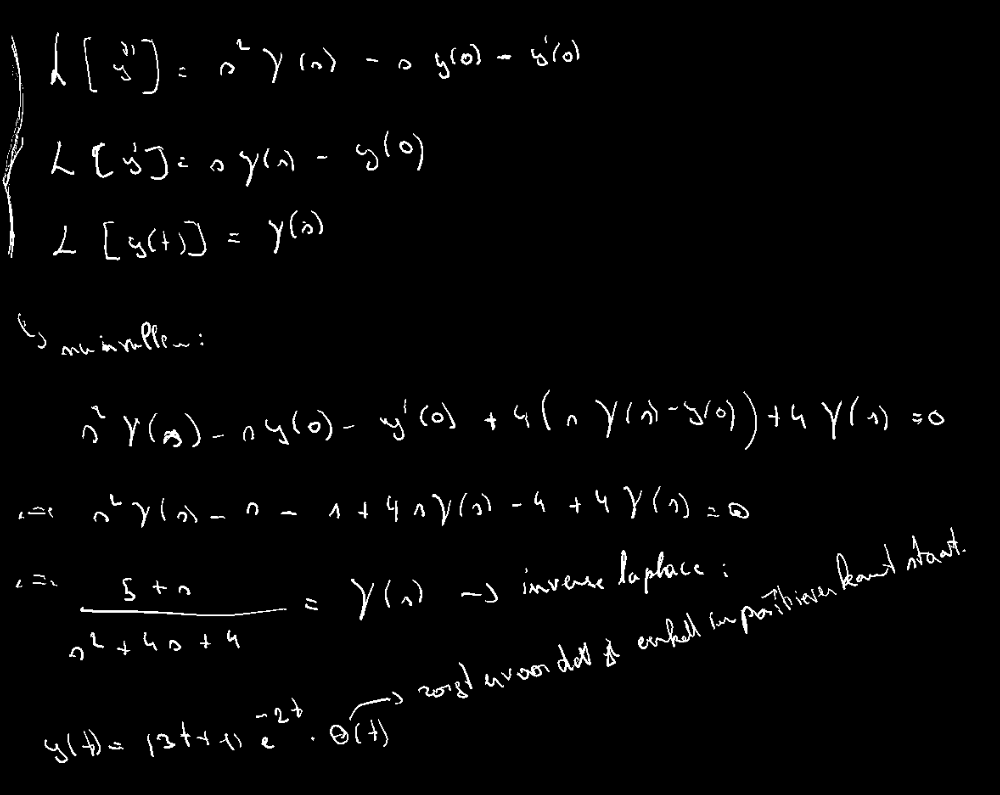 L[y''] = s² Y(s) - s y(0) - y'(0)
L[y'] = s Y(s) - y(0)
L[y(t)] = Y(s)
↳ nu invullen:
s² Y(s) - s y(0) - y'(0) + 4(s Y(s) - y(0)) + 4 Y(s) = 0
<=> s² Y(s) - s - 1 + 4 s Y(s) - 4 + 4 Y(s) = 0
<=> (5 + s)/(s² + 4s + 4) = Y(s) → inverse laplace:
y(t) = (3t + 1) e^(-2t) · Θ(t) → zorgt ervoor dat enkel positieve kant staat.